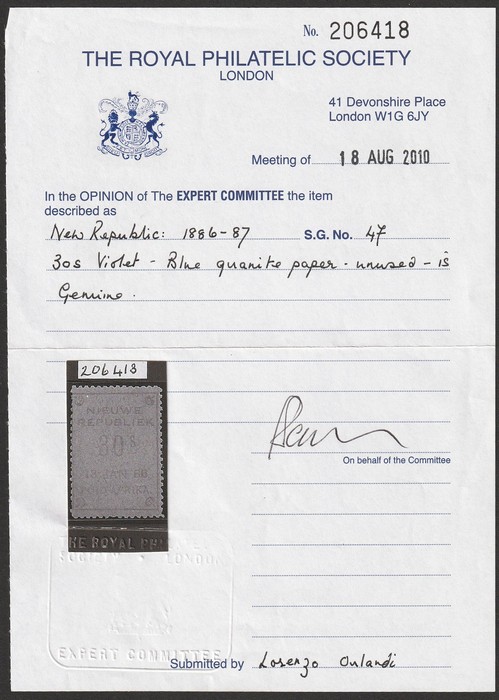 No. 206418
THE ROYAL PHILATELIC SOCIETY
LONDON
41 Devonshire Place
London W1G 6JY
Meeting of 18 AUG 2010
In the OPINION of The EXPERT COMMITTEE the item
described as
New Republic: 1886-87 S.G. No. 47
30s Violet - Blue granite paper - unused - is
Genuine.
206418
NIEUWE
REPUBLIEK
30s
13 JAN 86
ZUID AFRIKA
On behalf of the Committee
THE ROYAL PHI
SOCIETY LONDON
EXPERT COMMITTEE
Submitted by Lorenzo Orlandi